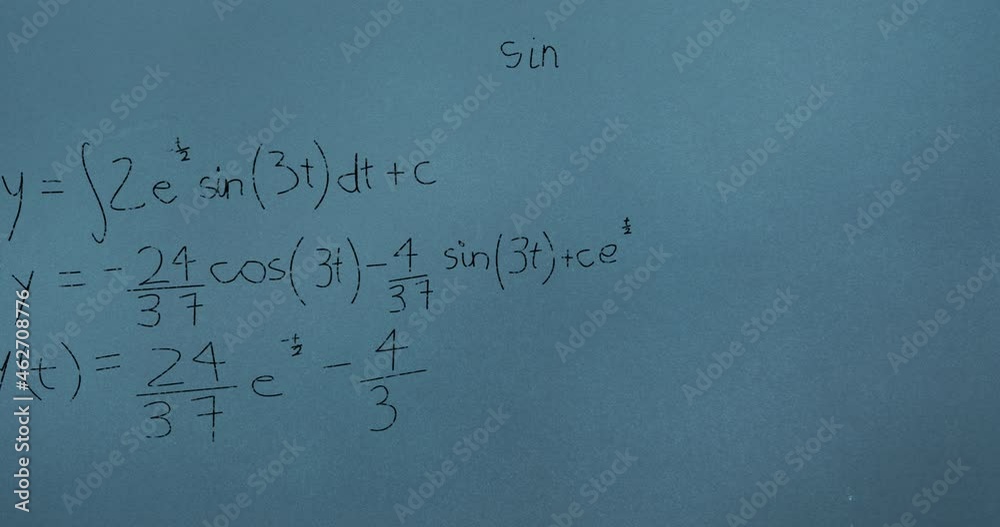 sin
y = ∫ 2e^(-t/2) sin(3t) dt + c
y = - 24/37 cos(3t) - 4/37 sin(3t) + ce^(t/2)
y(t) = 24/37 e^(-t/2) - 4/3
Adobe Stock | #462708776